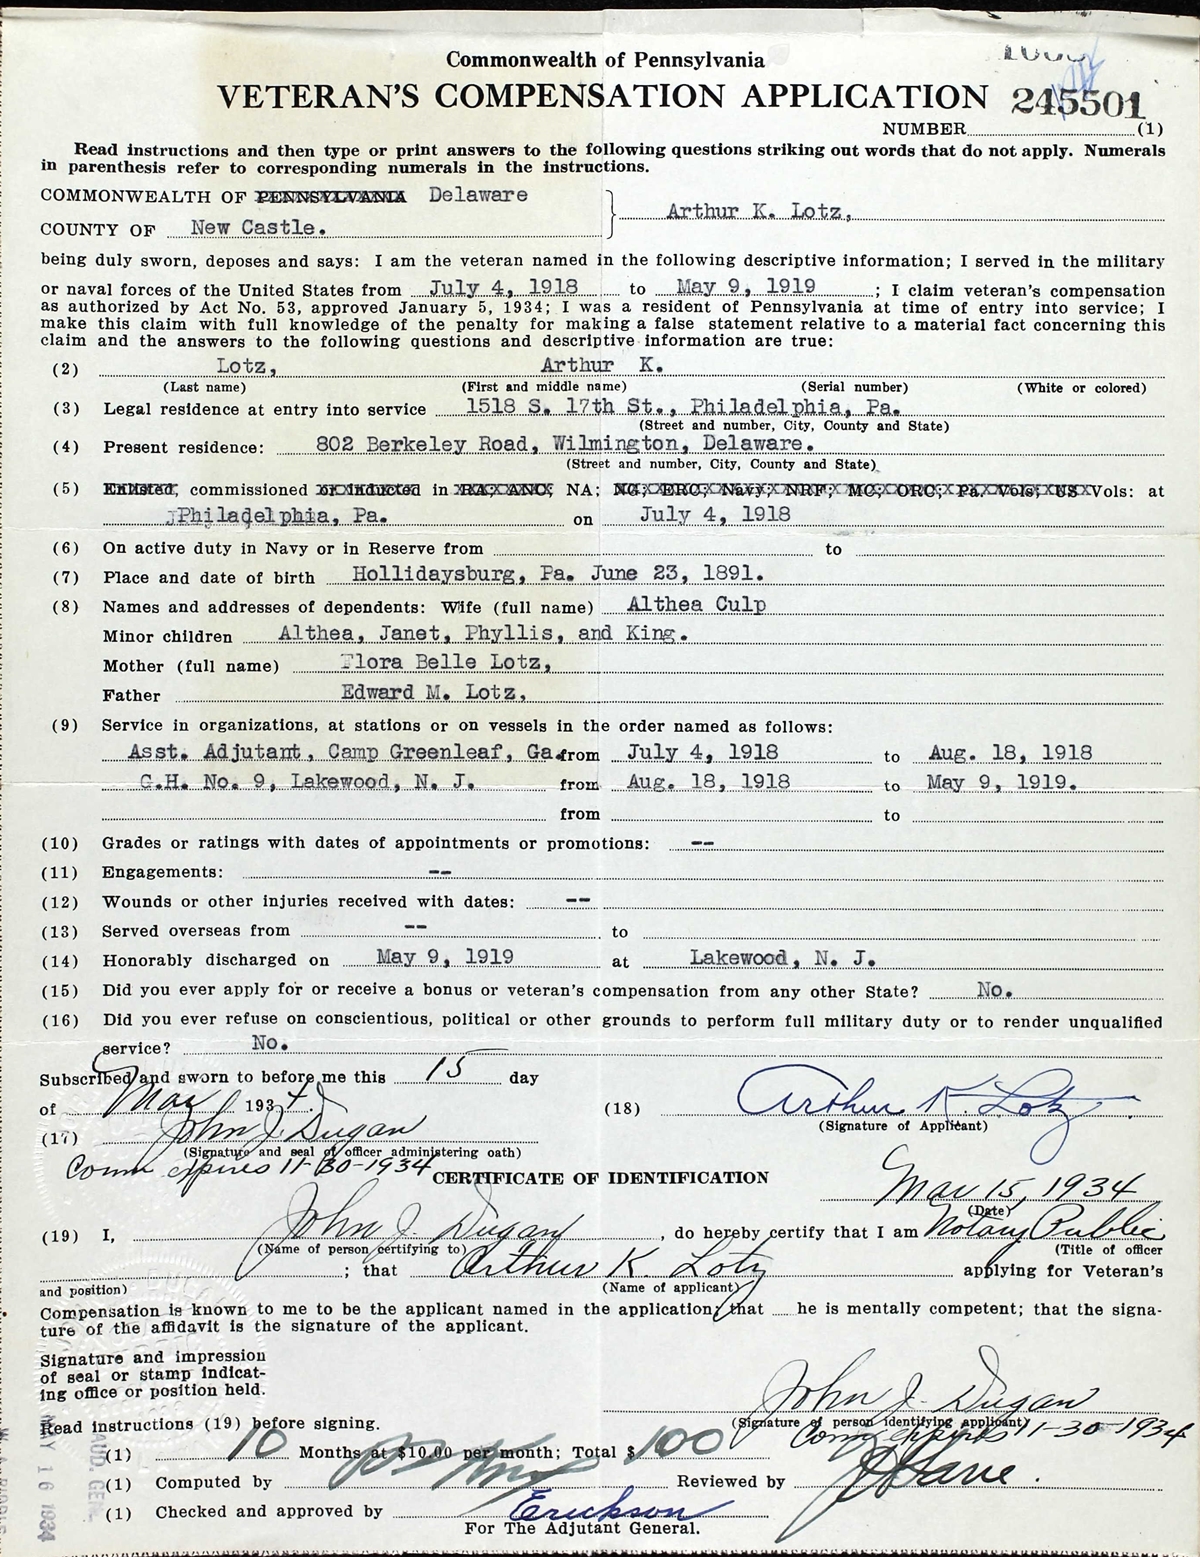 Commonwealth of Pennsylvania
VETERAN'S COMPENSATION APPLICATION 245501
NUMBER (1)
Read instructions and then type or print answers to the following questions striking out words that do not apply. Numerals
in parenthesis refer to corresponding numerals in the instructions.
COMMONWEALTH OF PENNSYLVANIA Delaware
Arthur K. Lotz,
COUNTY OF New Castle.
being duly sworn, deposes and says: I am the veteran named in the following descriptive information; I served in the military
or naval forces of the United States from July 4, 1918 to May 9, 1919 ; I claim veteran's compensation
as authorized by Act No. 53, approved January 5, 1934; I was a resident of Pennsylvania at time of entry into service; I
make this claim with full knowledge of the penalty for making a false statement relative to a material fact concerning this
claim and the answers to the following questions and descriptive information are true:
(2) Lotz, Arthur K.
(Last name) (First and middle name) (Serial number) (White or colored)
(3) Legal residence at entry into service 1518 S. 17th St., Philadelphia, Pa.
(Street and number, City, County and State)
(4) Present residence: 802 Berkeley Road, Wilmington, Delaware.
(Street and number, City, County and State)
(5) Enlisted, commissioned or inducted in RA; ANC; NA; NG; ERC; Navy; NRF; MC; ORC; Pa. Vols; US Vols: at
Philadelphia, Pa. on July 4, 1918
(6) On active duty in Navy or in Reserve from to
(7) Place and date of birth Hollidaysburg, Pa. June 23, 1891.
(8) Names and addresses of dependents: Wife (full name) Althea Culp
Minor children Althea, Janet, Phyllis, and King.
Mother (full name) Flora Belle Lotz,
Father Edward M. Lotz,
(9) Service in organizations, at stations or on vessels in the order named as follows:
Asst. Adjutant, Camp Greenleaf, Ga. from July 4, 1918 to Aug. 18, 1918
G.H. No. 9, Lakewood, N. J. from Aug. 18, 1918 to May 9, 1919.
from to
(10) Grades or ratings with dates of appointments or promotions: --
(11) Engagements: --
(12) Wounds or other injuries received with dates: --
(13) Served overseas from -- to
(14) Honorably discharged on May 9, 1919 at Lakewood, N. J.
(15) Did you ever apply for or receive a bonus or veteran's compensation from any other State? No.
(16) Did you ever refuse on conscientious, political or other grounds to perform full military duty or to render unqualified
service? No.
Subscribed and sworn to before me this 15 day
of May 1934.
(18) Arthur K. Lotz
(Signature of Applicant)
(17) John J. Dugan
(Signature and seal of officer administering oath)
Comm expires 11-30-1934
CERTIFICATE OF IDENTIFICATION
May 15, 1934
(Date)
(19) I, John J. Dugan , do hereby certify that I am Notary Public
(Name of person certifying to) (Title of officer
; that Arthur K. Lotz applying for Veteran's
and position) (Name of applicant)
Compensation is known to me to be the applicant named in the application; that he is mentally competent; that the signa-
ture of the affidavit is the signature of the applicant.
Signature and impression
of seal or stamp indicat-
ing office or position held.
John J. Dugan
Read instructions (19) before signing.
(Signature of person identifying applicant)
Comm expires 11-30-1934
(1) 10 Months at $10.00 per month; Total $ 100
(1) Computed by Reviewed by
(1) Checked and approved by Erickson
For The Adjutant General.
AUD. GEN.
MAY 16 1934